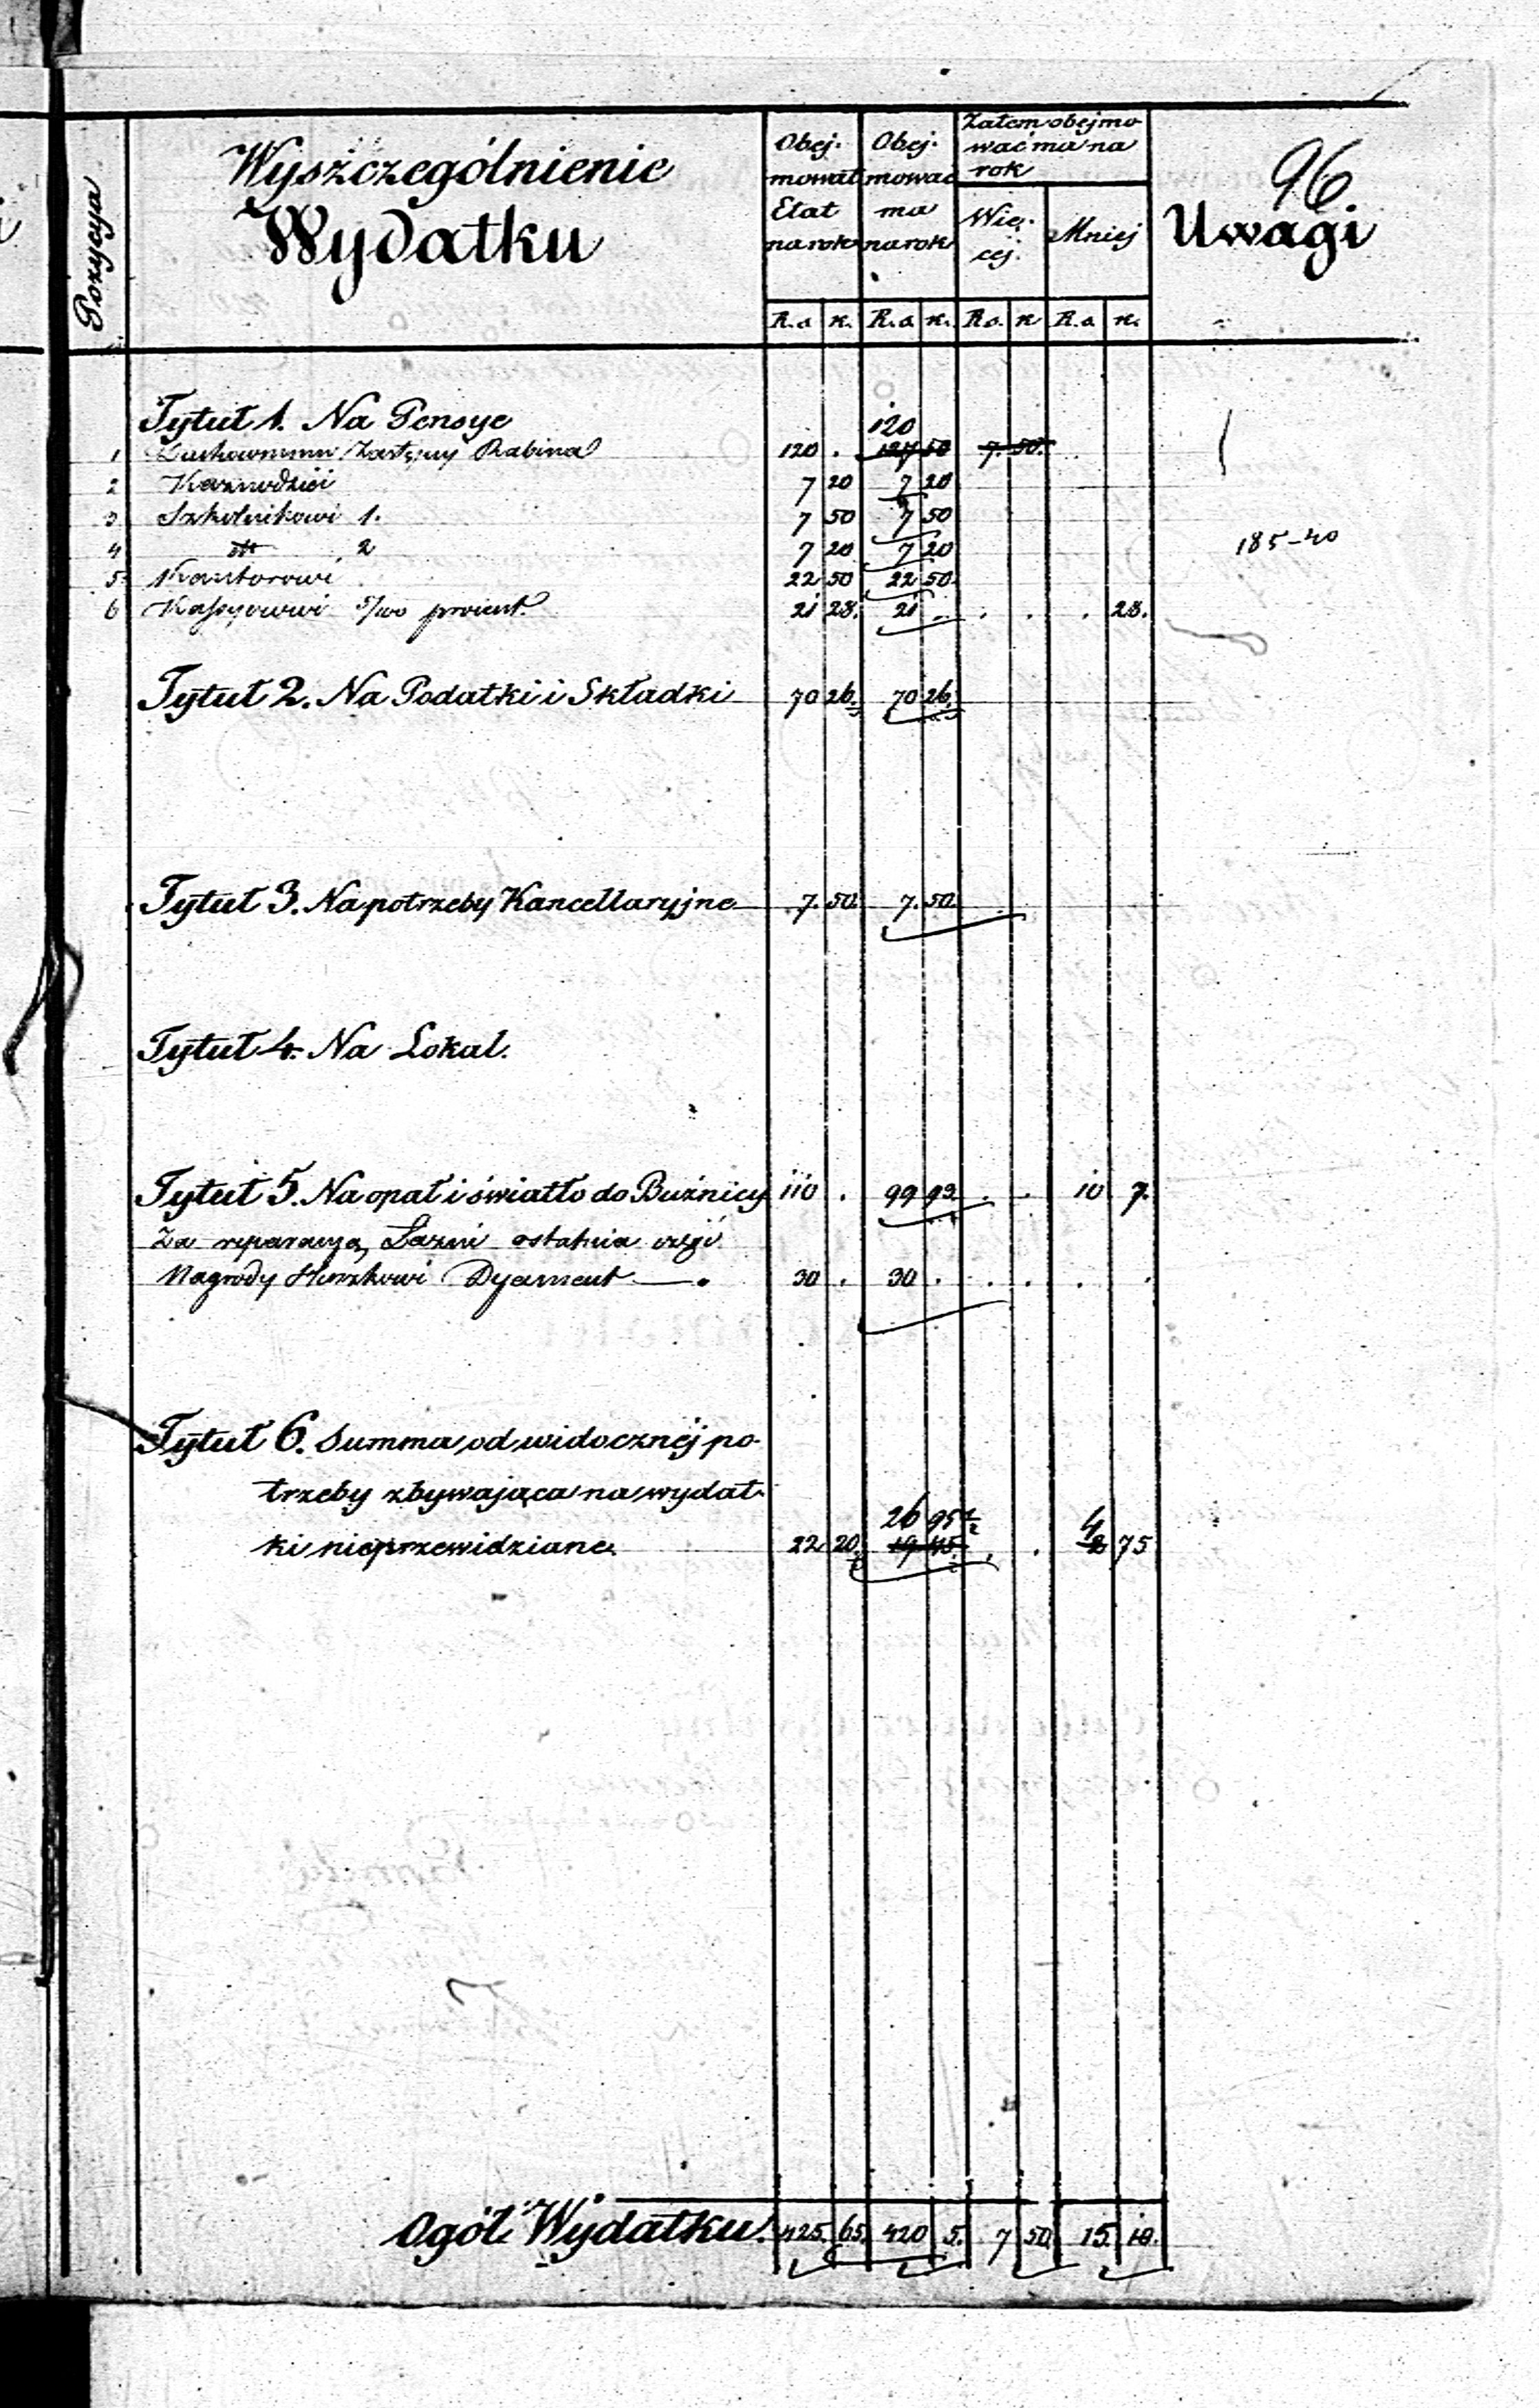 96
Pozycya
Wyszczególnienie
Wydatku
Obej-
mował
Etat
na rok
Obej-
mować
ma
na rok
Zatem obejmo
wać ma na
rok
Wię-
cej.
Mniej
Uwagi
R.s k. R.s k. R.s. k R.s k.
Tytuł 1. Na Pensye
120
1 Duchownemu Zastępcy Rabina 120 . 127 50 7. 50.
2 Kaznodziei 7 20 7 20
3 Szkolnikowi 1. 7 50 7 50
4 dtto 2 7 20 7 20
185-40
5 Kantorowi 22 50 22 50
6 Kassyerowi 5/100 procent 21 28. 21 . . . . 28.
Tytuł 2. Na Podatki i Składki 70 26. 70 26.
Tytuł 3. Na potrzeby Kancellaryjne 7. 50. 7. 50.
Tytuł 4. Na Lokal.
Tytuł 5. Na opał i światło do Buźnicy 110 . 99 93. . . 10 7.
Za reparacyą Łazni ostatnia
Nagrody Herszkowi Dyament —. 30 . 30 . . . . .
Tytuł 6. Summa od widocznéj po-
trzeby zbywająca na wydat-
26 95 1/2 4
ki nieprzewidziane. 22 20. 19 45. . . 2 75
Ogół Wydatku. 425. 65. 420 5. 7 50. 15. 10.